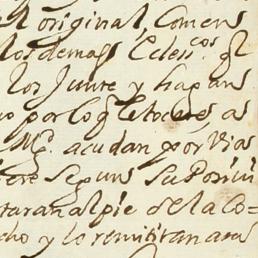 l original, Comens
los demas Eclen.cos q̃l
los Junte y hagan
o por lo q̃ le toca, as
Mg.d acudan por Vios
ere segun su Posivi
taran al pie de la Co-
cho y lo remitiran a su